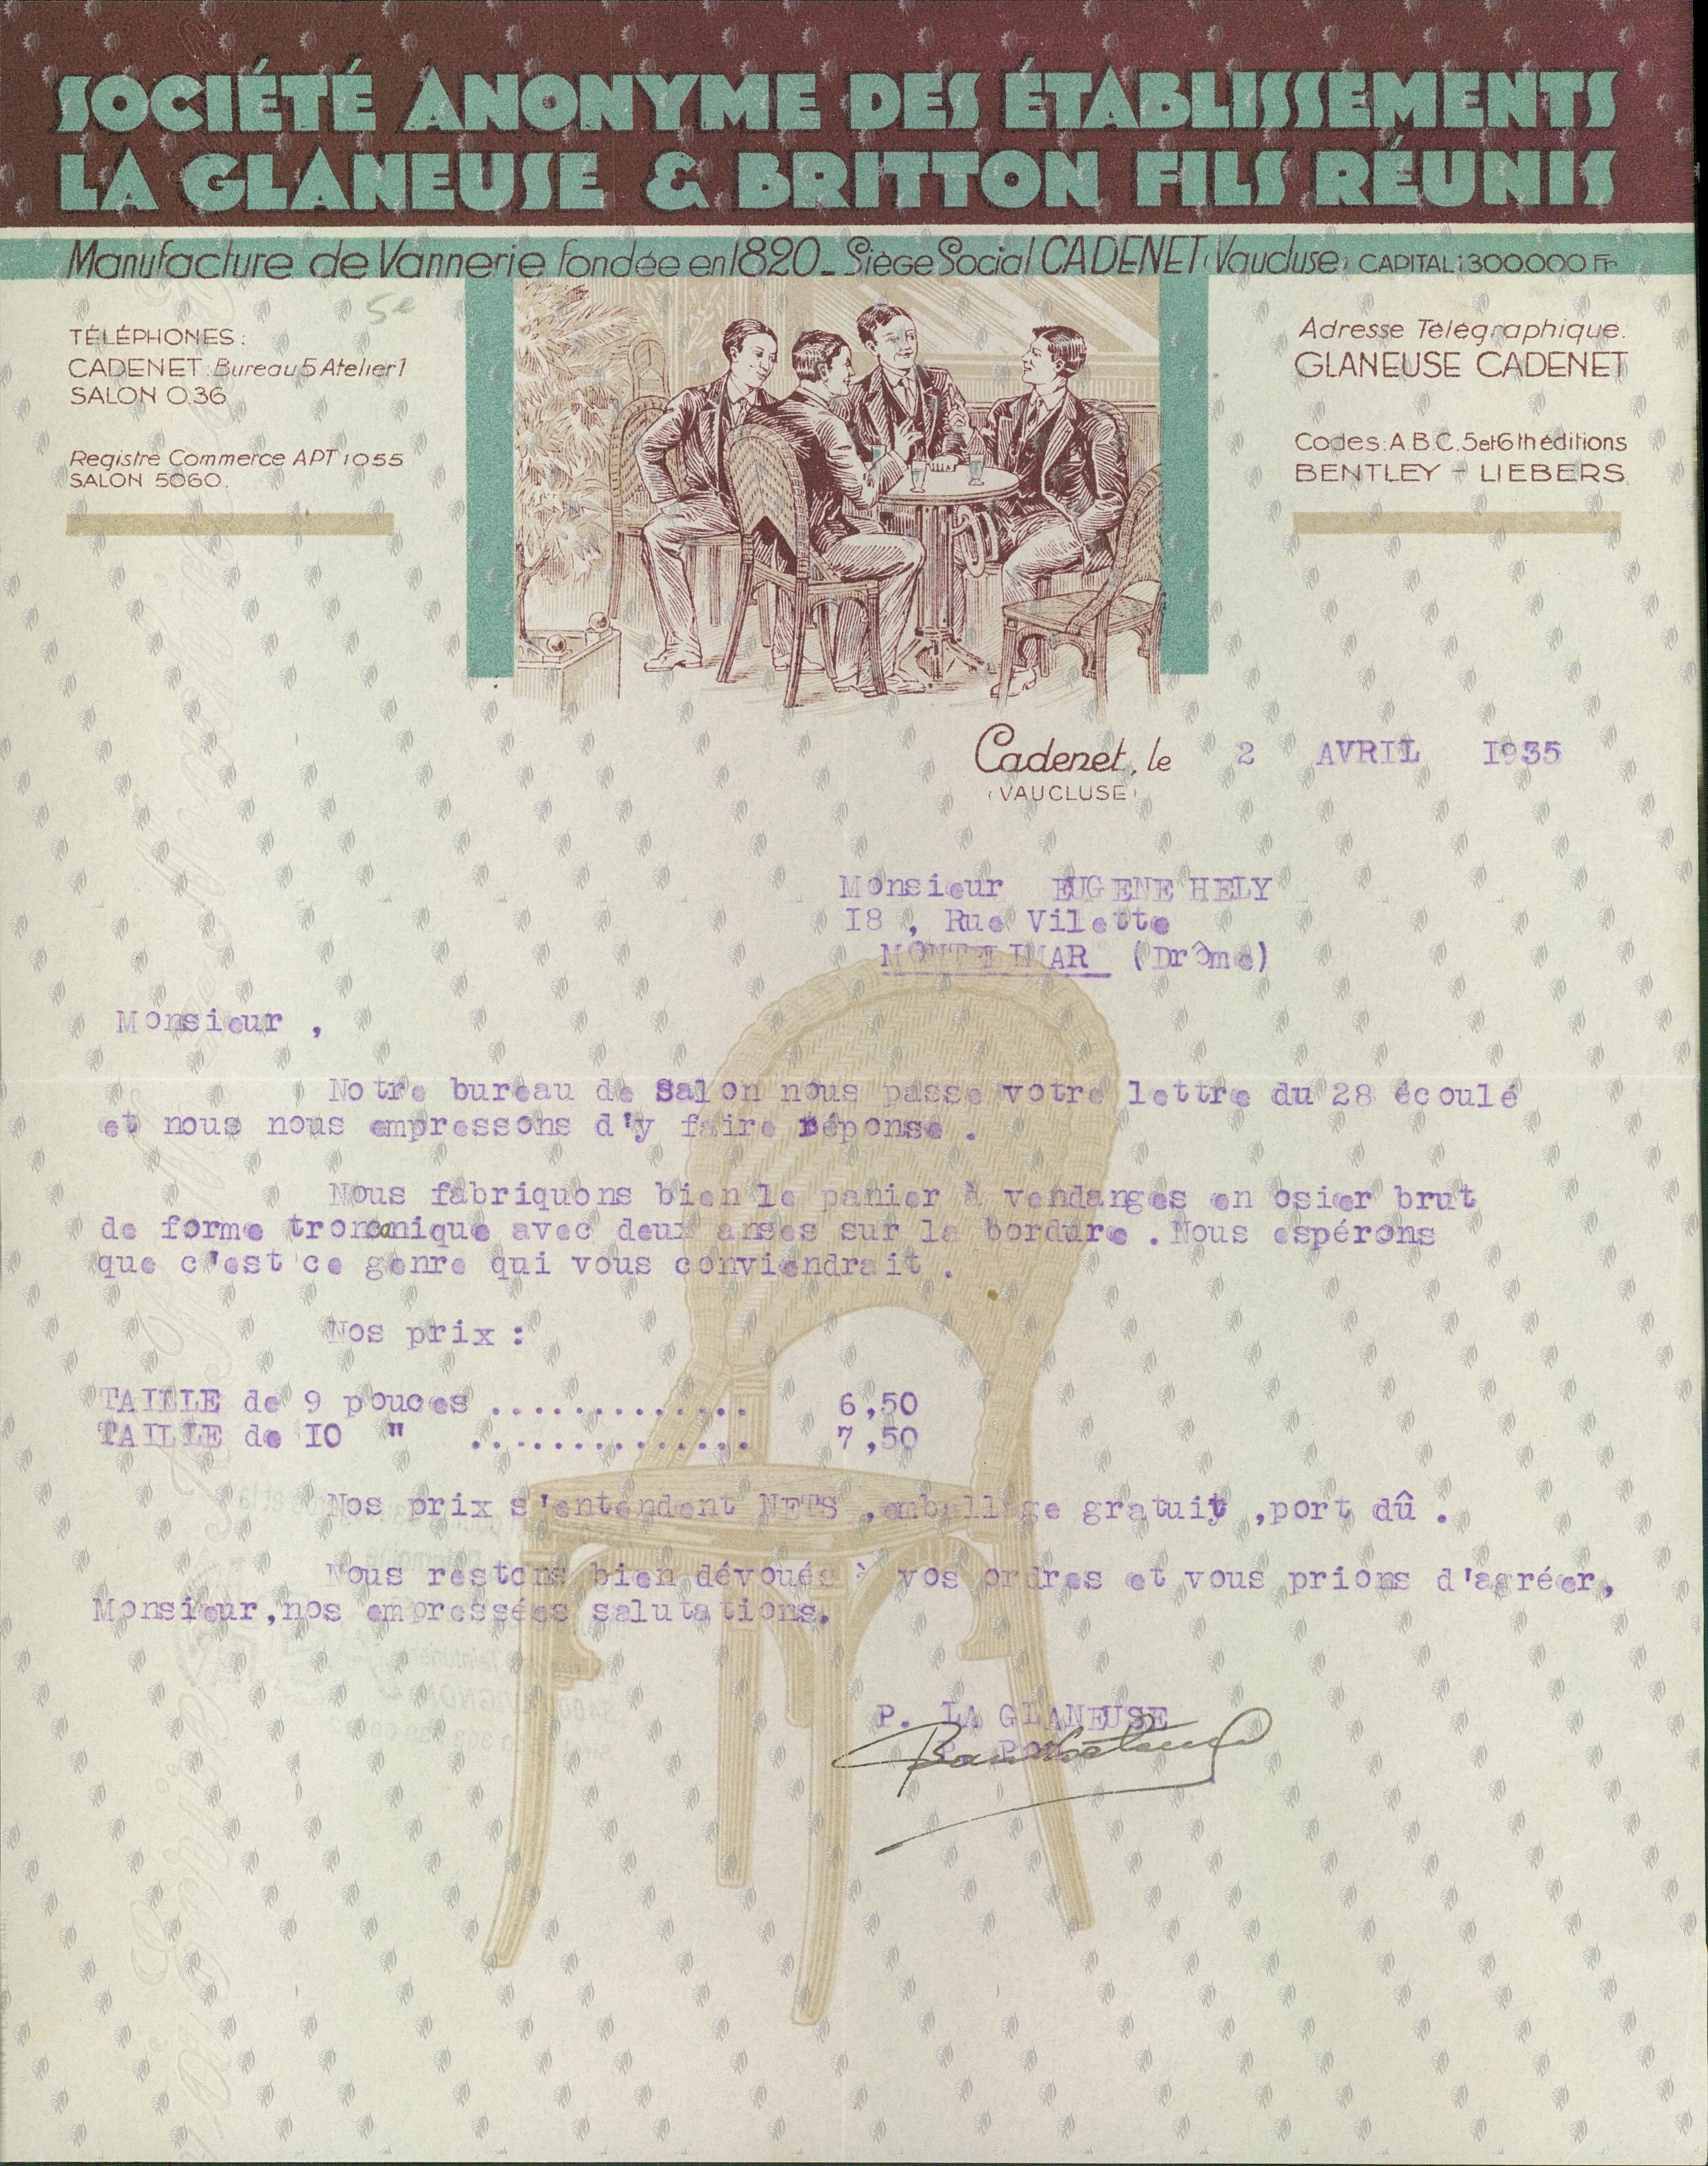 SOCIÉTÉ ANONYME DES ÉTABLISSEMENTS
LA GLANEUSE & BRITTON FILS RÉUNIS
Manufacture de Vannerie fondée en 1820 _ Siège Social CADENET (Vaucluse) CAPITAL : 1300.000 Frs
TÉLÉPHONES :
CADENET : Bureau 5 Atelier 1
SALON 0.36
Registre Commerce APT 1055
SALON 5060.
Adresse Télégraphique.
GLANEUSE CADENET
Codes : A.B.C. 5 et 6 th éditions
BENTLEY - LIEBERS
Cadenet, le 2 AVRIL 1935
(VAUCLUSE)
Monsieur EUGENE HELY
I8 , Rue Vilette
MONTELIMAR (Drôme)
Monsieur ,
Notre bureau de Salon nous passe votre lettre du 28 écoulé
et nous nous empressons d'y faire réponse .
Nous fabriquons bien le panier à vendanges en osier brut
de forme tronconique avec deux anses sur la bordure . Nous espérons
que c'est ce genre qui vous conviendrait .
Nos prix :
TAILLE de 9 pouces ............. 6,50
TAILLE de IO " .............. 7,50
Nos prix s'entendent NETS ,emballage gratuit ,port dû .
Nous restons bien dévoués à vos ordres et vous prions d'agréer,
Monsieur,nos empressées salutations.
P. LA GLANEUSE